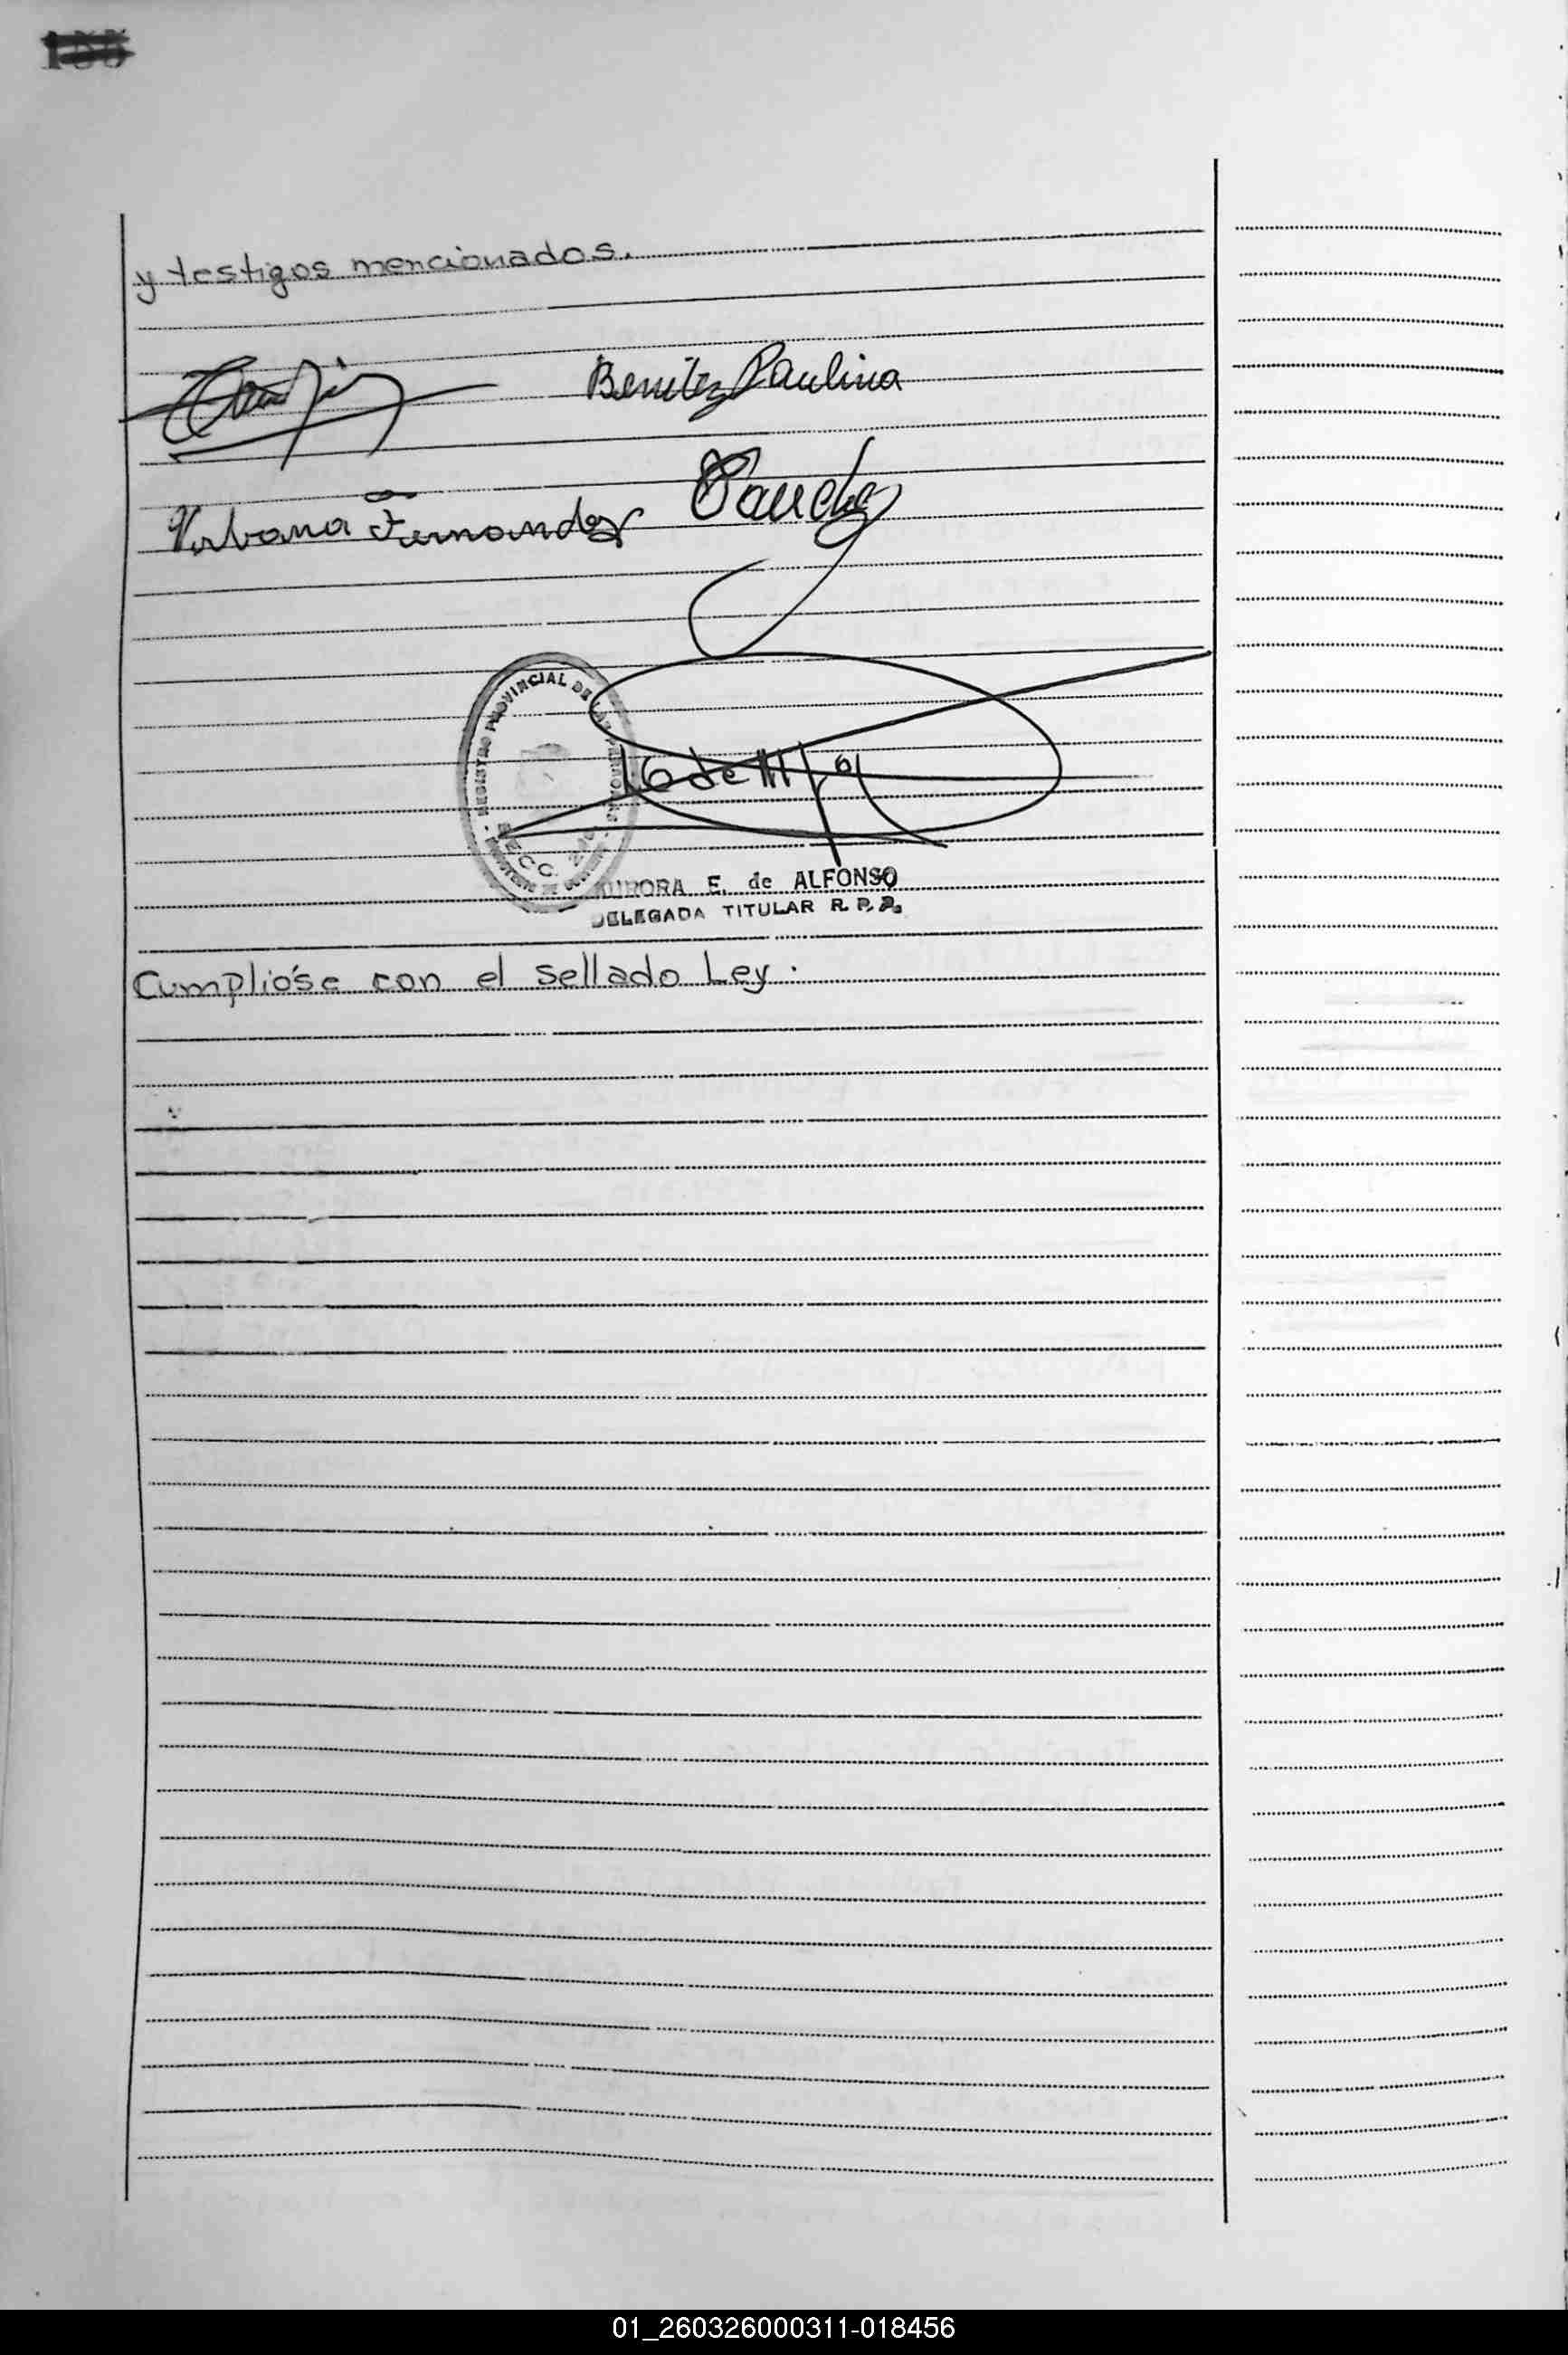 y testigos mencionados.
Benitez Paulina
Urbana Fernandez
Sanchez
REGISTRO PROVINCIAL DE LAS PERSONAS
SECC.
16 de III/
AURORA E. de ALFONSO
DELEGADA TITULAR R. P. P.
Cumplióse con el sellado Ley.
01_260326000311-018456